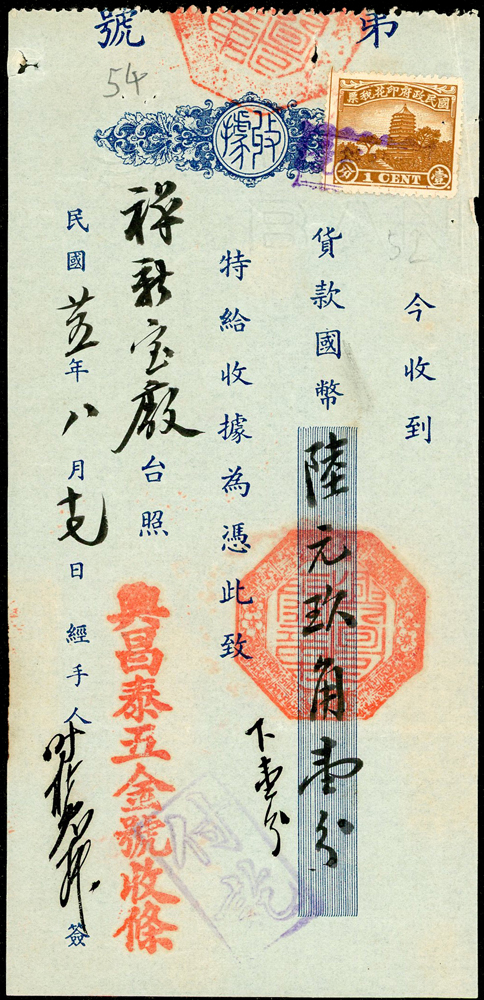 第 號
54
收據
國民政府印花稅票
壹分
1 CENT
52
今收到
貨款國幣陸元玖角壹分
下壹分
特給收據為憑此致
祥新宝廠台照
民國廿五年八月十九日經手人 簽
興昌泰五金號收條
付訖